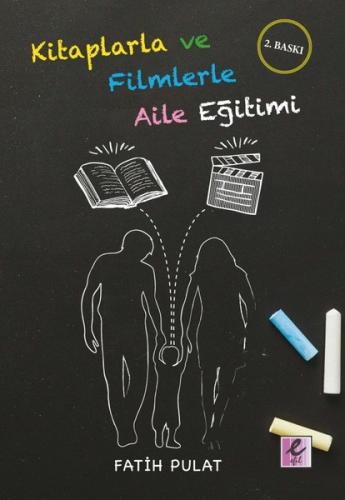 Kitaplarla ve
2. BASKI
Filmlerle
Aile Eğitimi
e
efil
FATİH PULAT